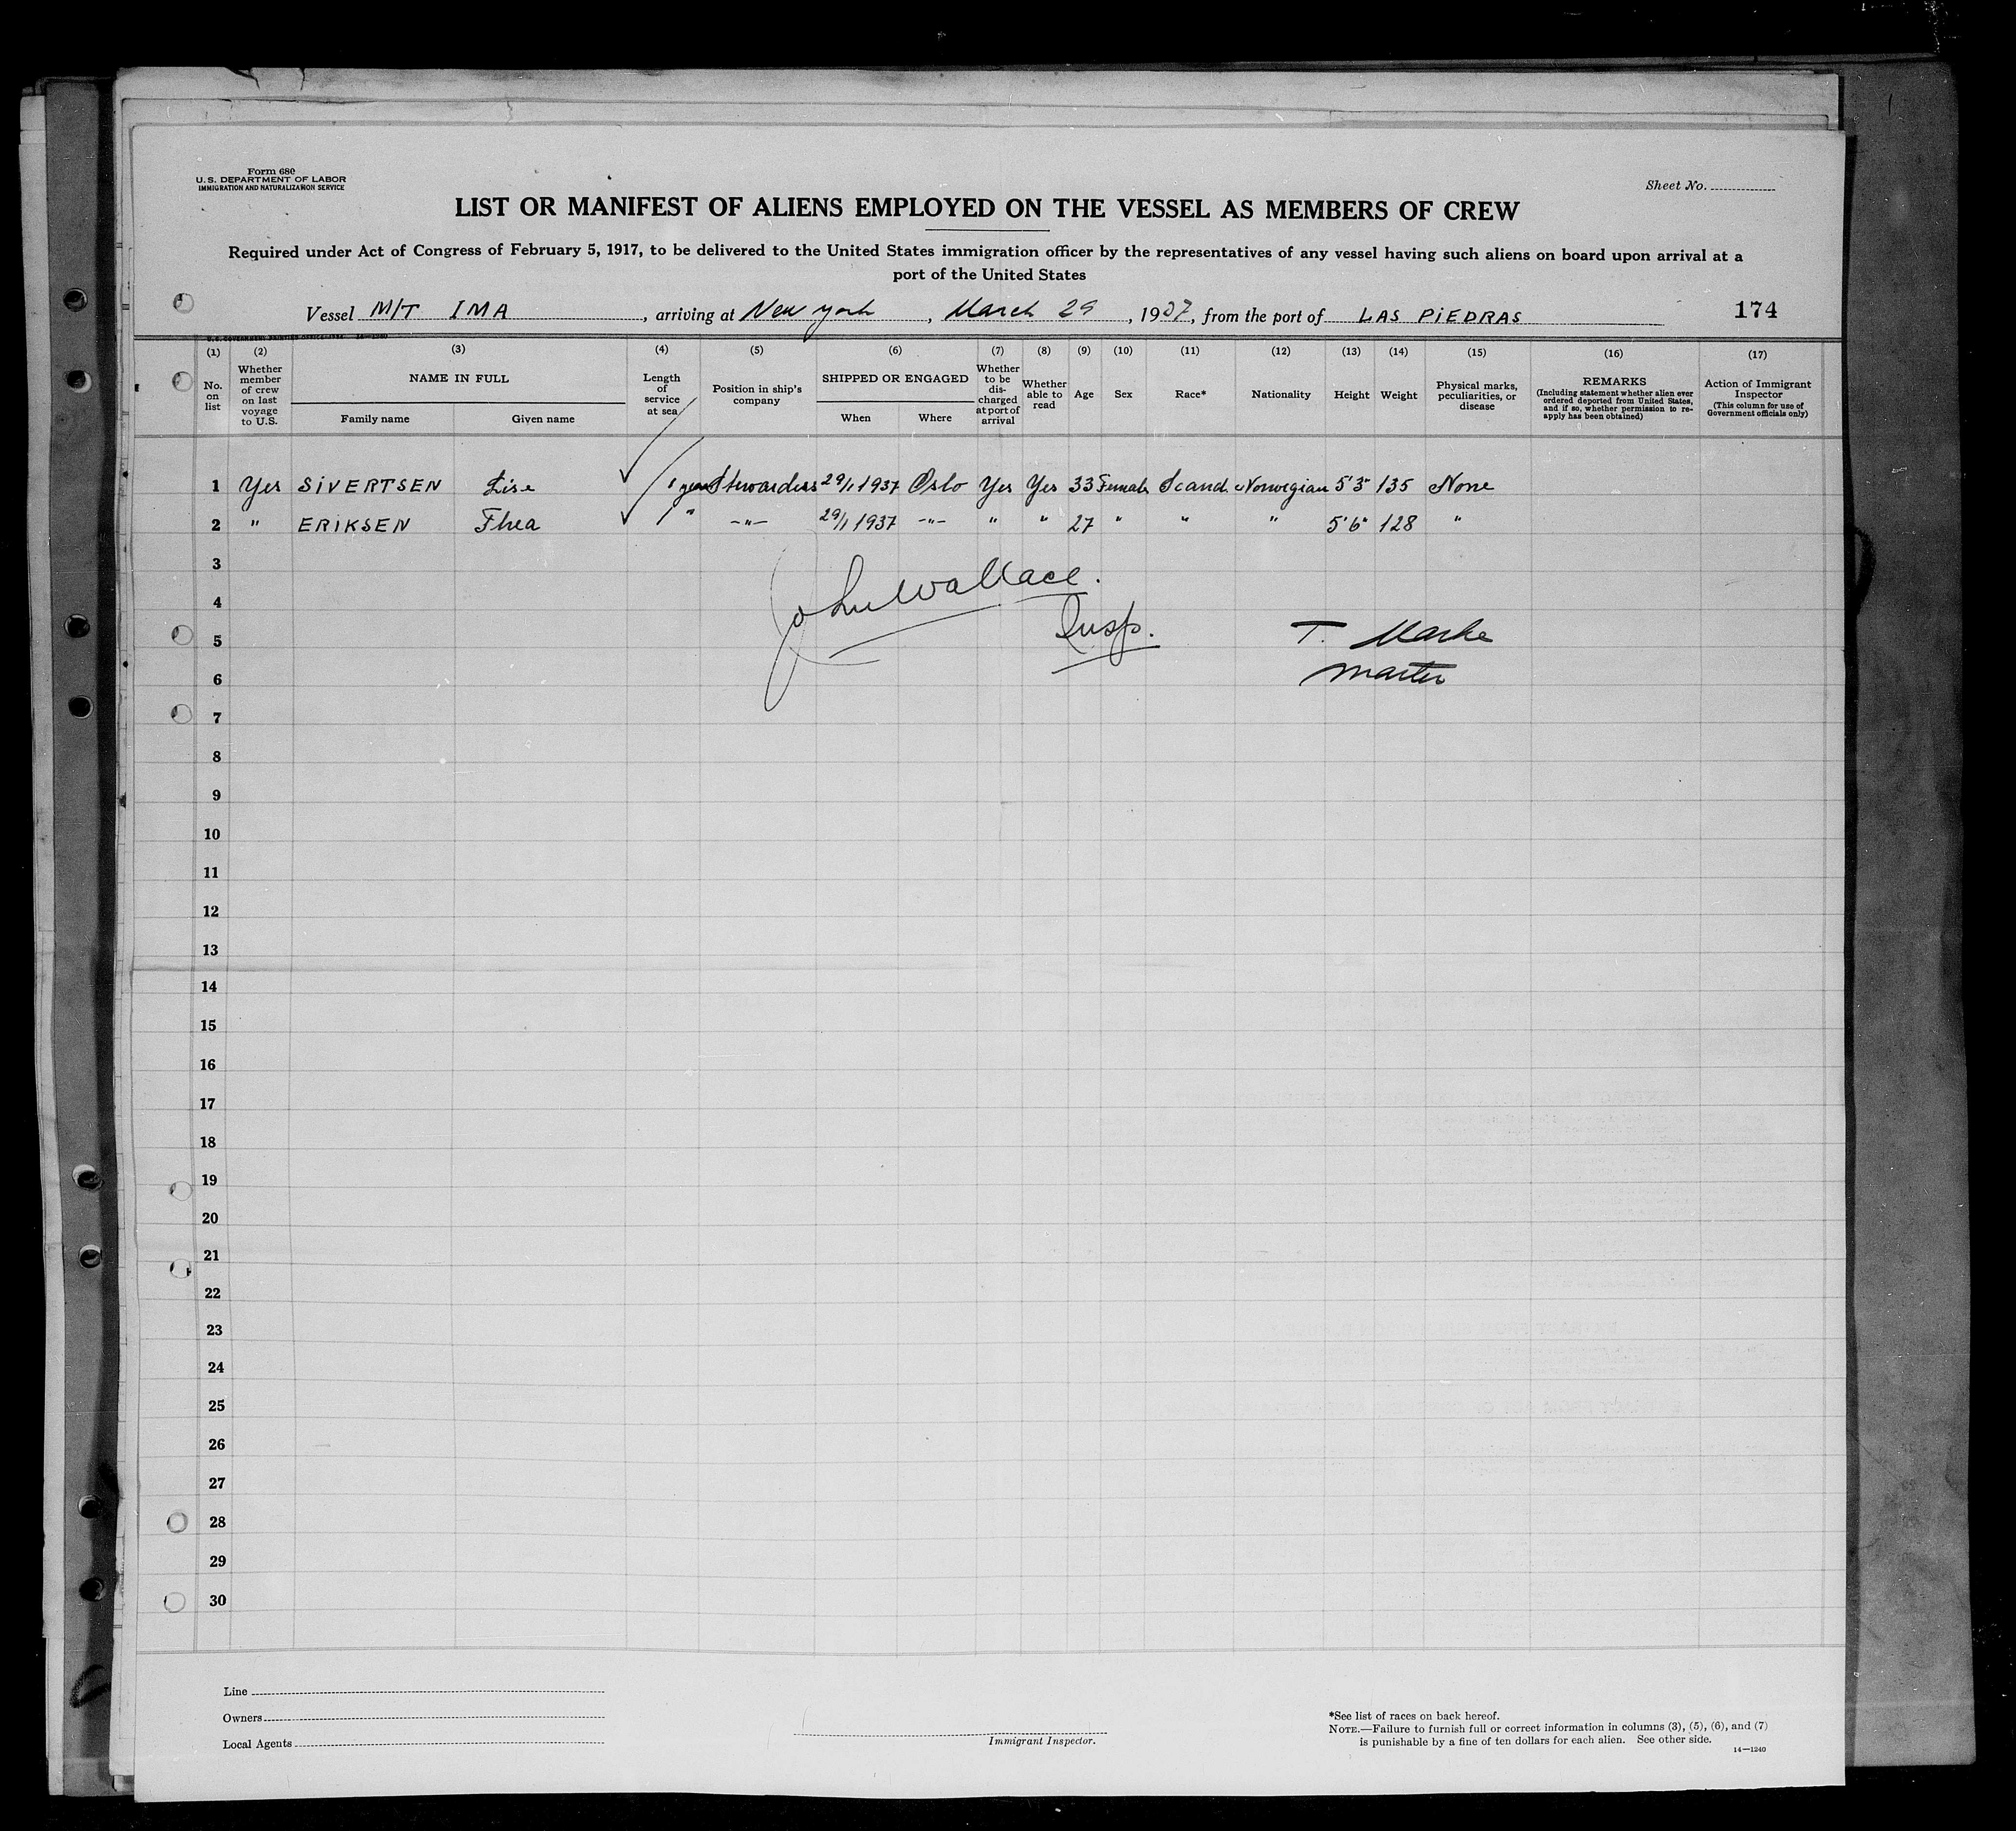 Form 680
U. S. DEPARTMENT OF LABOR
IMMIGRATION AND NATURALIZATION SERVICE
Sheet No.
LIST OR MANIFEST OF ALIENS EMPLOYED ON THE VESSEL AS MEMBERS OF CREW
Required under Act of Congress of February 5, 1917, to be delivered to the United States immigration officer by the representatives of any vessel having such aliens on board upon arrival at a
port of the United States
Vessel M/T IMA, arriving at New York, March 29, 1937, from the port of LAS PiEDRAS 174
(1) (2) (3) (4) (5) (6) (7) (8) (9) (10) (11) (12) (13) (14) (15) (16) (17)
No. on list
Whether member of crew on last voyage to U.S.
NAME IN FULL
Family name Given name
Length of service at sea
Position in ship's company
SHIPPED OR ENGAGED
When Where
Whether to be discharged at port of arrival
Whether able to read
Age
Sex
Race*
Nationality
Height
Weight
Physical marks, peculiarities, or disease
REMARKS
(Including statement whether alien ever ordered deported from United States, and if so, whether permission to re-apply has been obtained)
Action of Immigrant Inspector
(This column for use of Government officials only)
1 Yes SiVERTSEN Lise 1 year Stewardess 29/1 1937 Oslo Yes Yes 33 Female Scand. Norwegian 5'3" 135 None
2 " ERIKSEN Thea 1 " -"- 29/1 1937 -"- " " 27 " " " 5'6" 128 "
3
John Wallace.
4
Insp.
5
T. 
6
Master
7
8
9
10
11
12
13
14
15
16
17
18
19
20
21
22
23
24
25
26
27
28
29
30
Line
Owners
Local Agents
Immigrant Inspector.
*See list of races on back hereof.
NOTE.—Failure to furnish full or correct information in columns (3), (5), (6), and (7)
is punishable by a fine of ten dollars for each alien. See other side.
14—1240